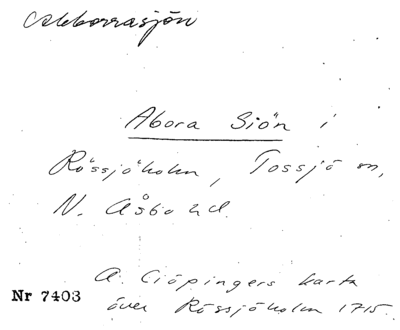 Abborrasjön
Abora Siön i
Rössjöholm, Tossjö sn,
N. Åsbo hd.
A. Ciöpingers karta
Nr 7403
över Rössjöholm 1715.